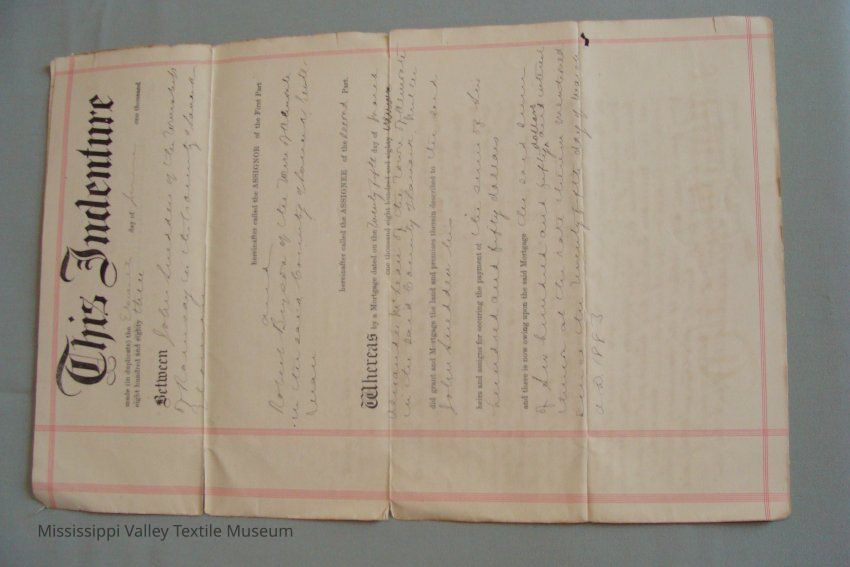 This Indenture
made (in duplicate) the Eleventh day of June one thousand
eight hundred and eighty three
Between John Sneddon of the Township
of Ramsay in the County of Lanark
hereinafter called the ASSIGNOR of the First Part
and
Robert Bryson of the Town of Almonte
in the said County of Lanark
hereinafter called the ASSIGNEE of the Second Part.
Whereas by a Mortgage dated on the Twenty fifth day of March
one thousand eight hundred and eighty
McLean of the Town of Almonte
in the said County of Lanark
did grant and Mortgage the land and premises therein described to the said
John Sneddon his
heirs and assigns for securing the payment of the sum of Six
hundred and fifty dollars
and there is now owing upon the said Mortgage the said sum
of Six hundred and fifty dollars and interest
thereon at the rate therein mentioned
since the Twenty fifth day of March
A D 1883
Mississippi Valley Textile Museum